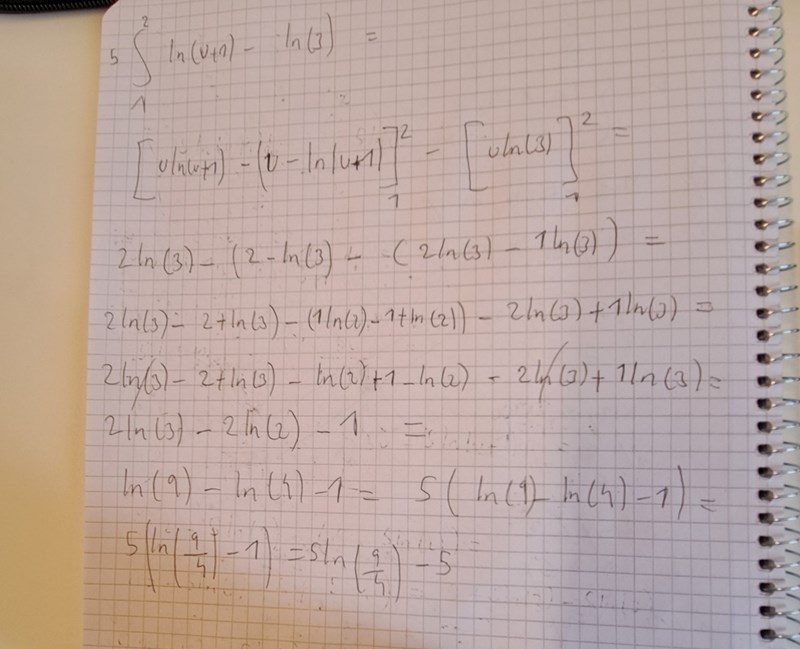 5 ∫₁² ln(u+1) - ln(3) =
[u ln(u+1) - (u - ln|u+1)]₁² - [u ln(3)]₁² =
2 ln(3) - (2 - ln(3) - - (2 ln(3) - 1 ln(3)) =
2 ln(3) - 2 + ln(3) - (1 ln(2) - 1 + ln(2)) - 2 ln(3) + 1 ln(3) =
2 ln(3) - 2 + ln(3) - ln(2) + 1 - ln(2) - 2 ln(3) + 1 ln(3) =
2 ln(3) - 2 ln(2) - 1 =
ln(9) - ln(4) - 1 = 5( ln(9) - ln(4) - 1) =
5(ln(9/4) - 1) = 5 ln(9/4) - 5